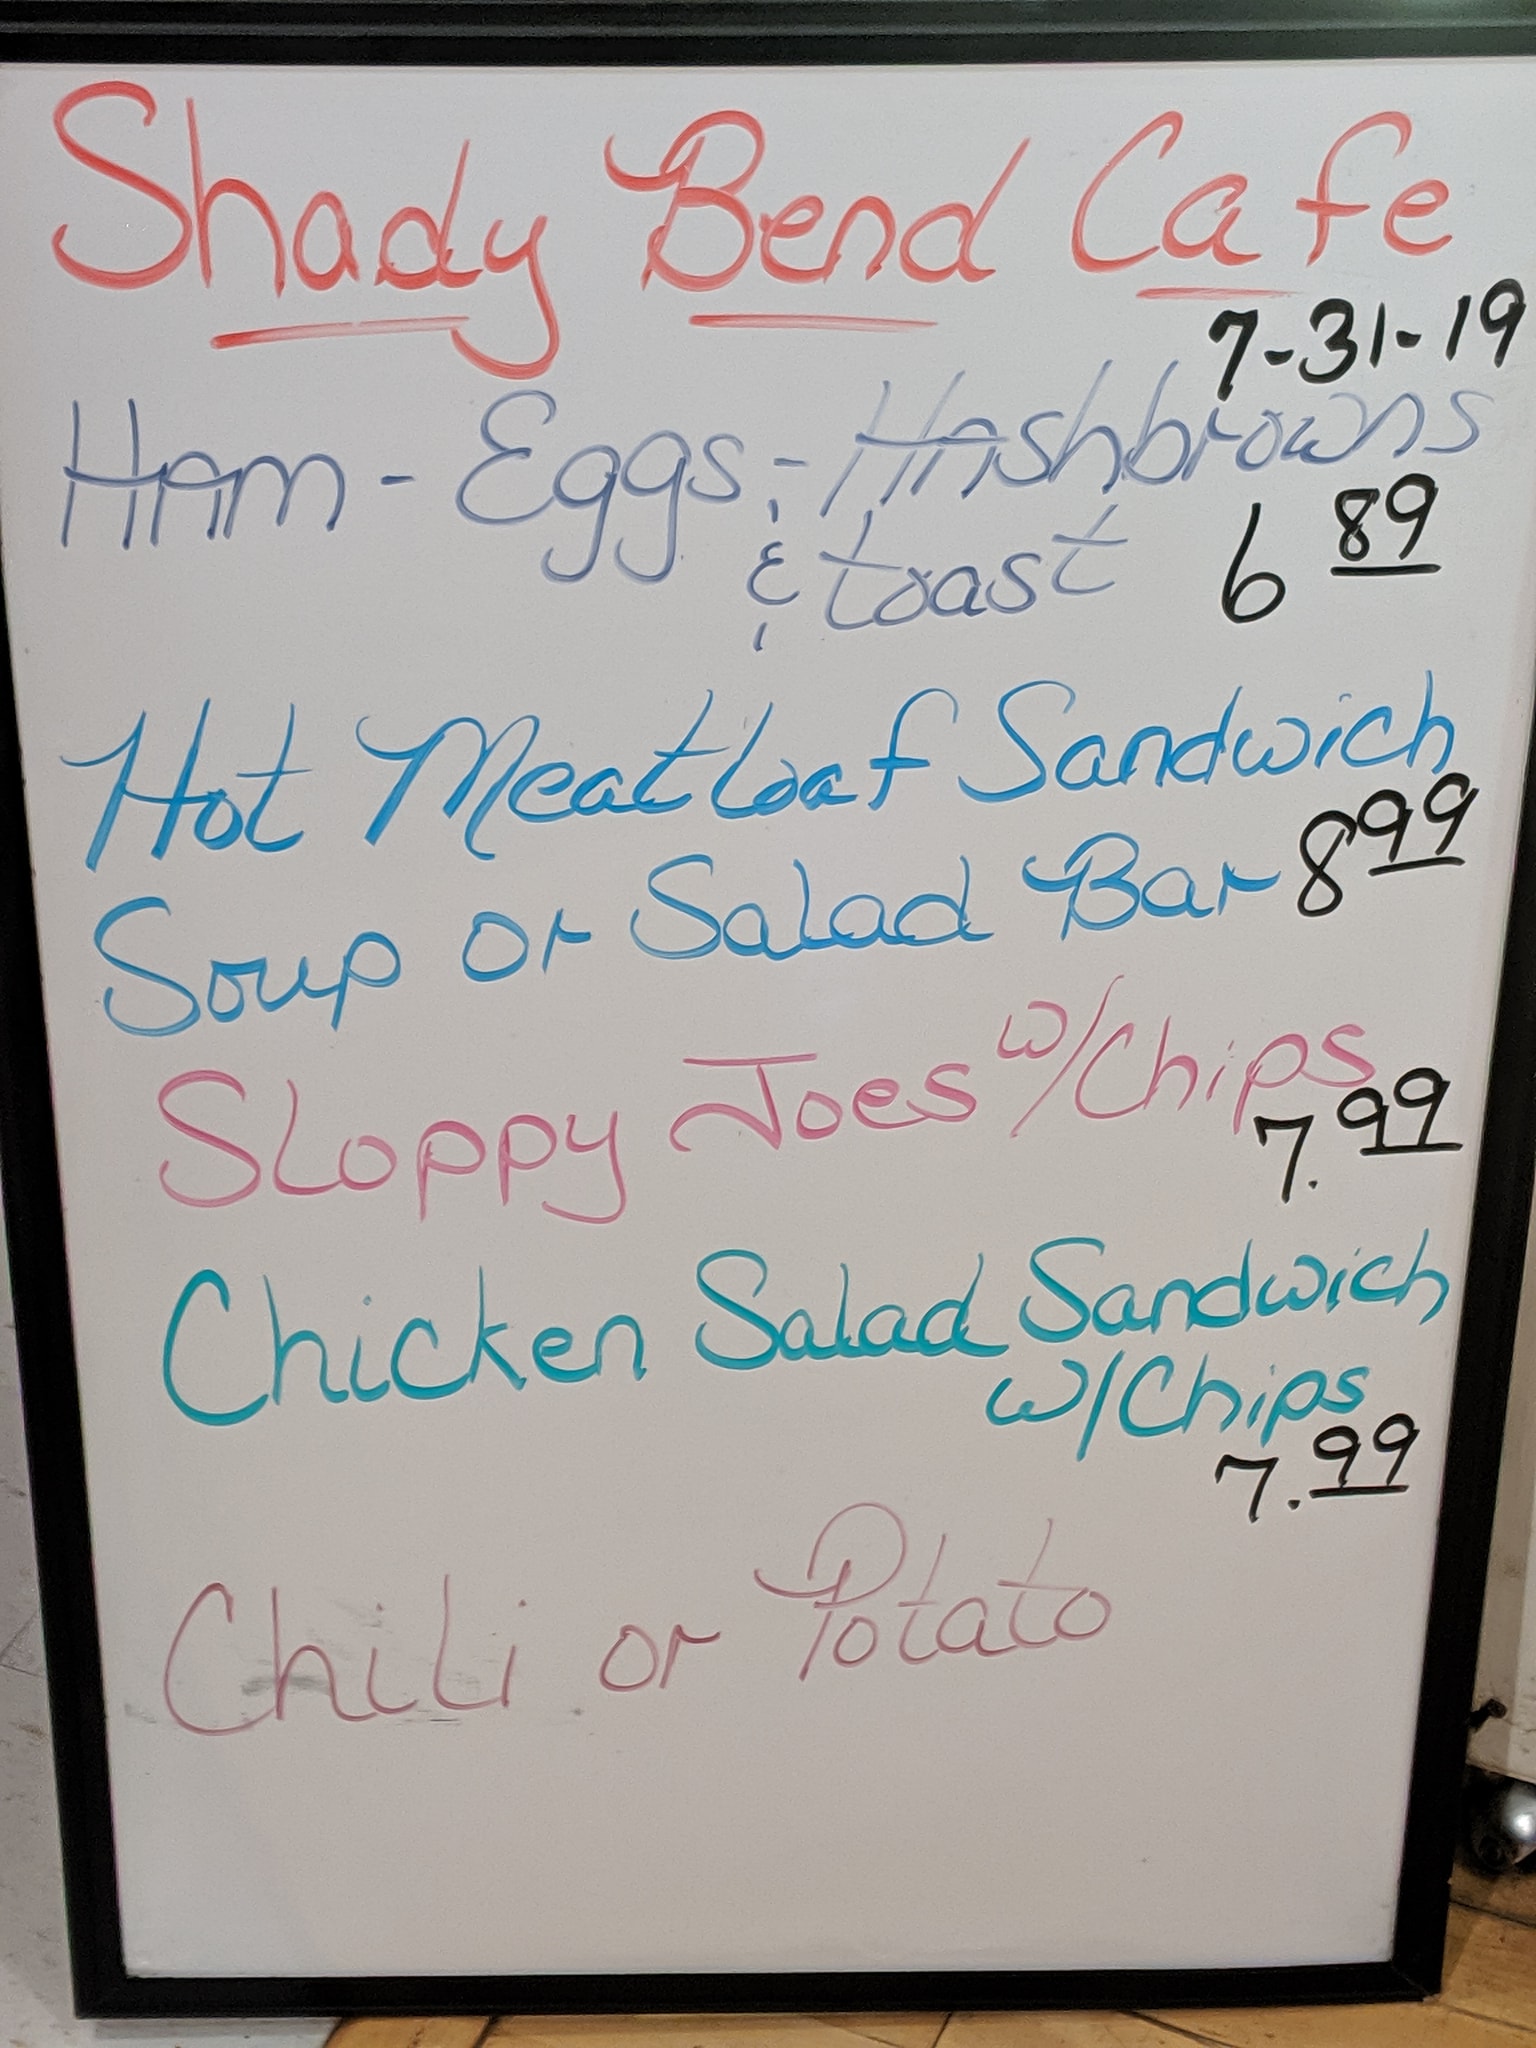 Shady Bend Cafe
7-31-19
Ham - Eggs - Hashbrowns
& toast 6 89
Hot Meatloaf Sandwich
Soup or Salad Bar 8 99
Sloppy Joes w/Chips
7.99
Chicken Salad Sandwich
w/Chips
7.99
Chili or Potato